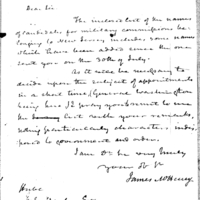 Dear Sir.
The inclosed list of the names
of candidates for military commissions be-
longing to New Jersey includes some names
which have been added since the one
sent you on the 30th of July.
As it will be necessary to
decide upon the subject of appointments
in a short time, General Washington
being here I pray you to return to me
the list with your remarks,
noting particularly character,
to government and order.
I am Dr Sir very truly
your
James McHenry